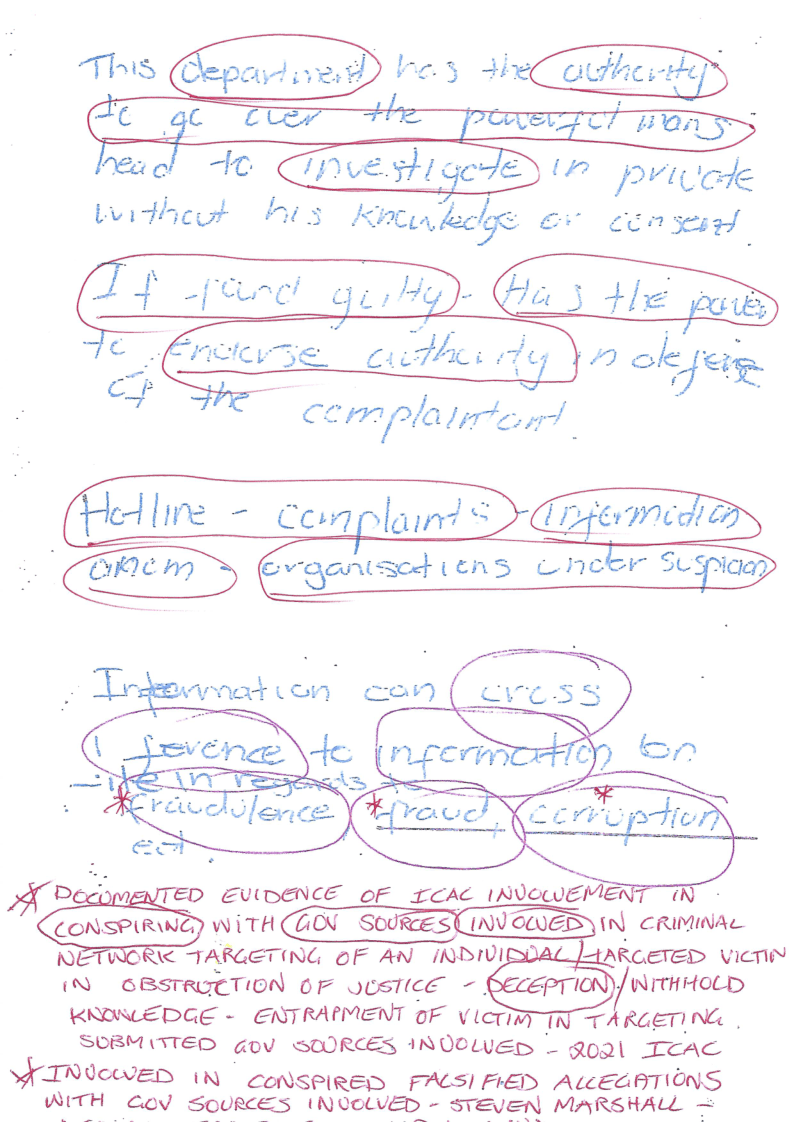 This department has the authority
To go over the powerful mans
head to investigate in private
without his knowledge or consent
If found guilty - Has the power
to endorse authority in defense
of the complaintant
Hotline - complaints - information
organisations under suspicion
Information can cross
ference to information on
in regards to
Fraudulence fraud, corruption
ect
* DOCUMENTED EVIDENCE OF ICAC INVOLVEMENT IN
CONSPIRING WITH GOV SOURCES INVOLVED IN CRIMINAL
NETWORK TARGETING OF AN INDIVIDUAL/TARGETED VICTIM
IN OBSTRUCTION OF JUSTICE - DECEPTION/WITHHOLD
KNOWLEDGE - ENTRAPMENT OF VICTIM IN TARGETING.
SUBMITTED GOV SOURCES INVOLVED - 2021 ICAC
* INVOLVED IN CONSPIRED FALSIFIED ALLEGATIONS
WITH GOV SOURCES INVOLVED - STEVEN MARSHALL -